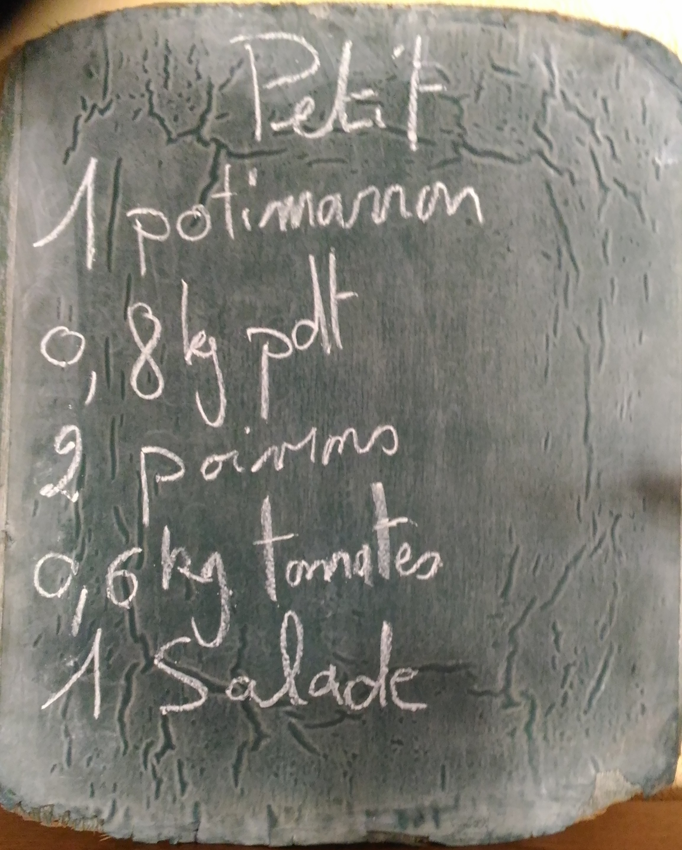 Petit
1 potimarron
0,8 kg pdt
2 poivrons
0,6 kg tomates
1 Salade